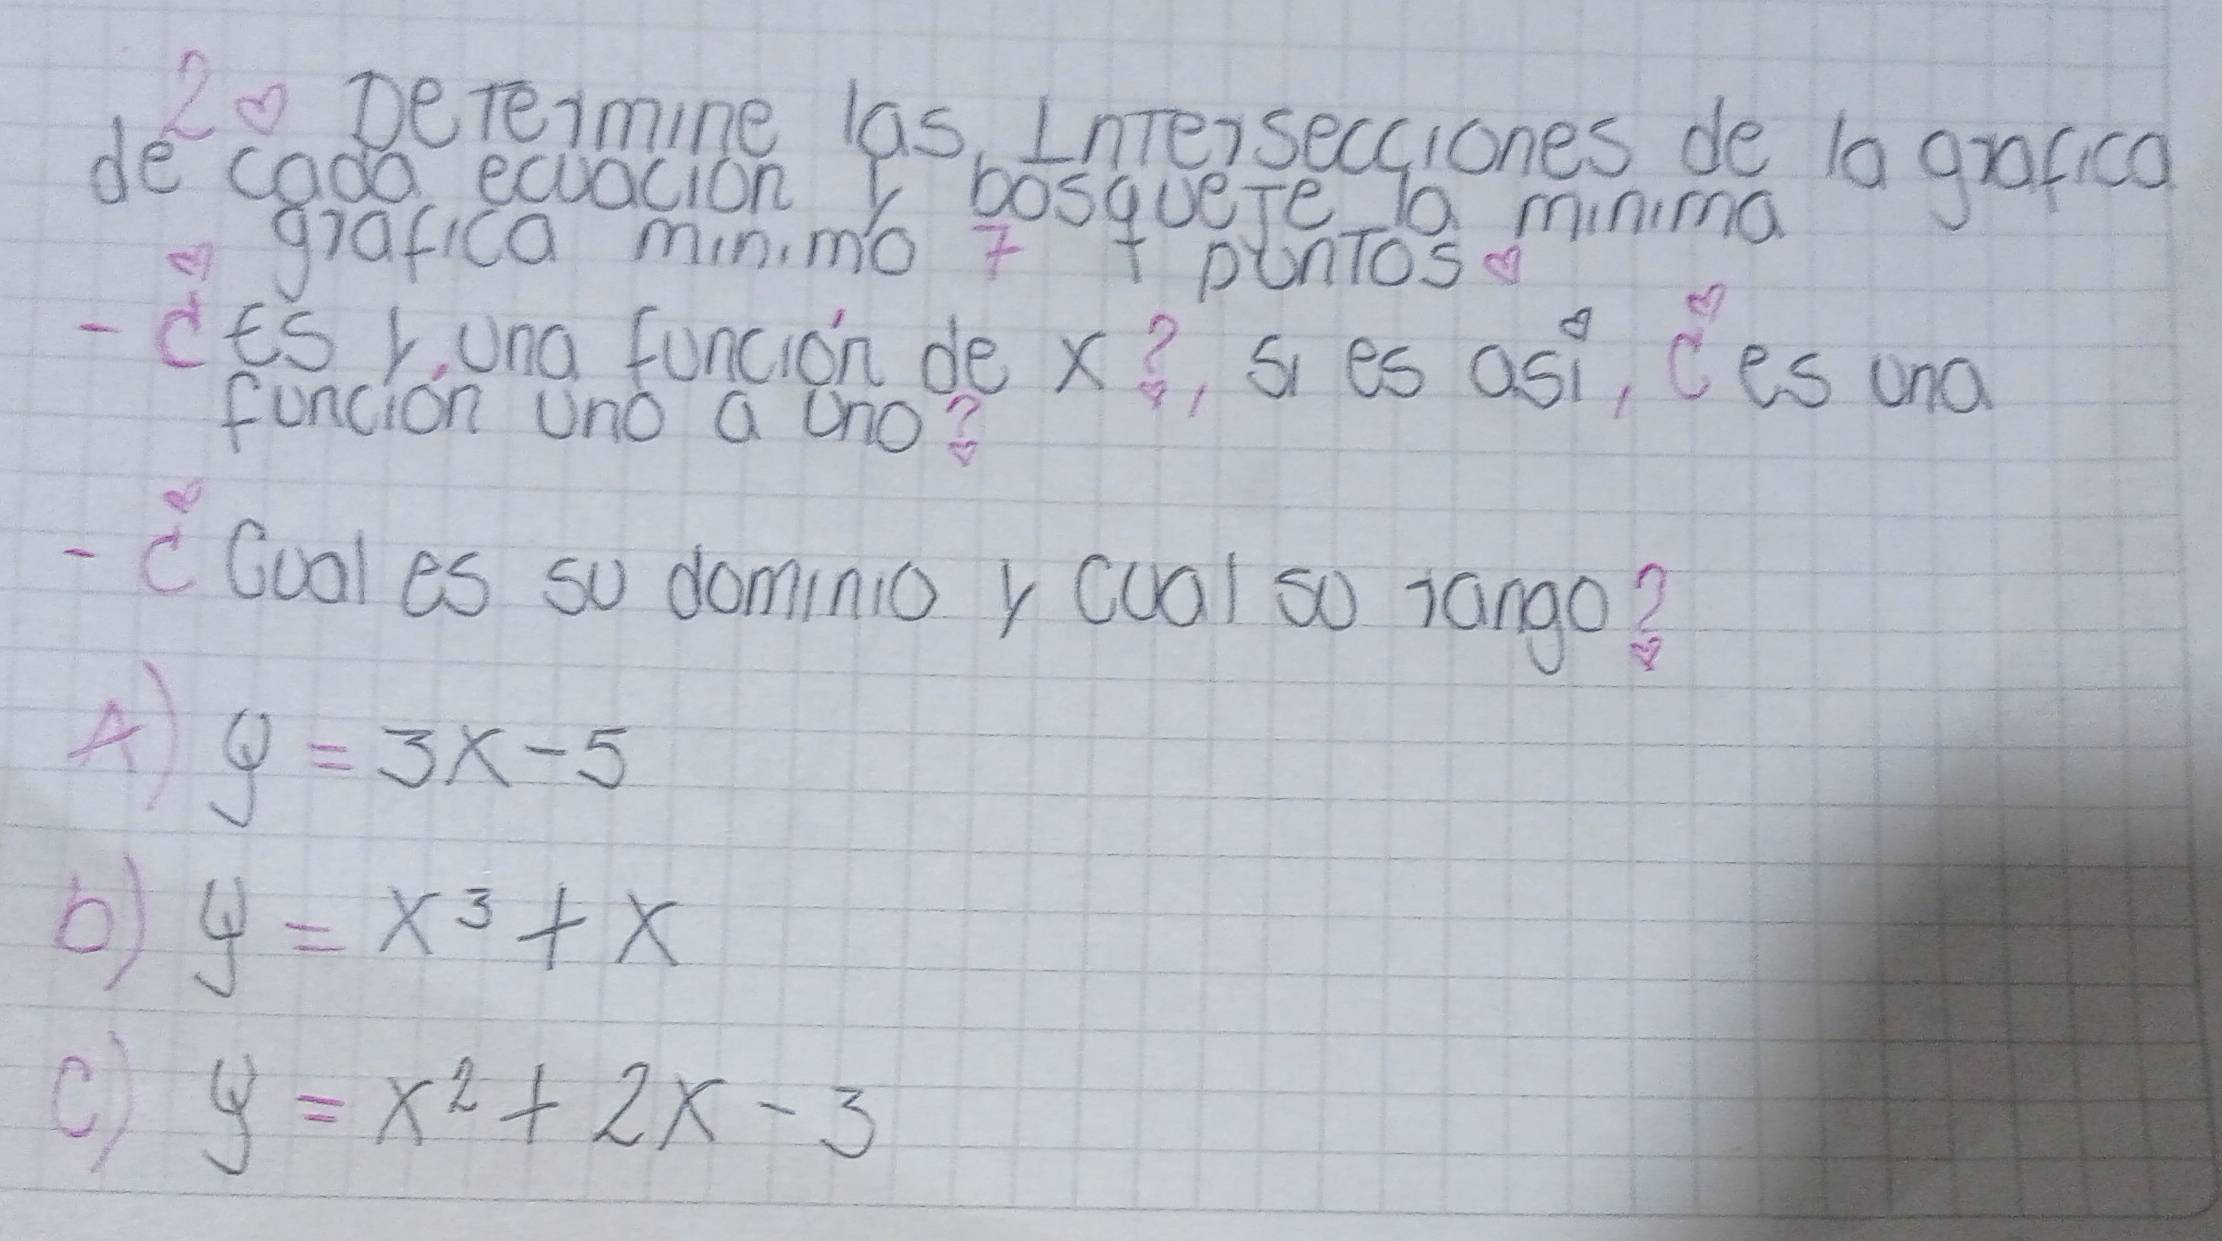 2 Determine las Intersecciones de la grafica
de cada ecuacion y bosqueje la minima
grafica minimo 7 + puntos
- ¿Es y una función de x?, si es asi, ¿es una
función uno a uno?
- ¿Cual es su dominio y cual su rango?
A) y = 3x - 5
b) y = x³ + x
c) y = x² + 2x - 3